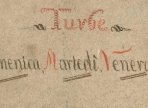 Turbe
menica, Martedì, Vener